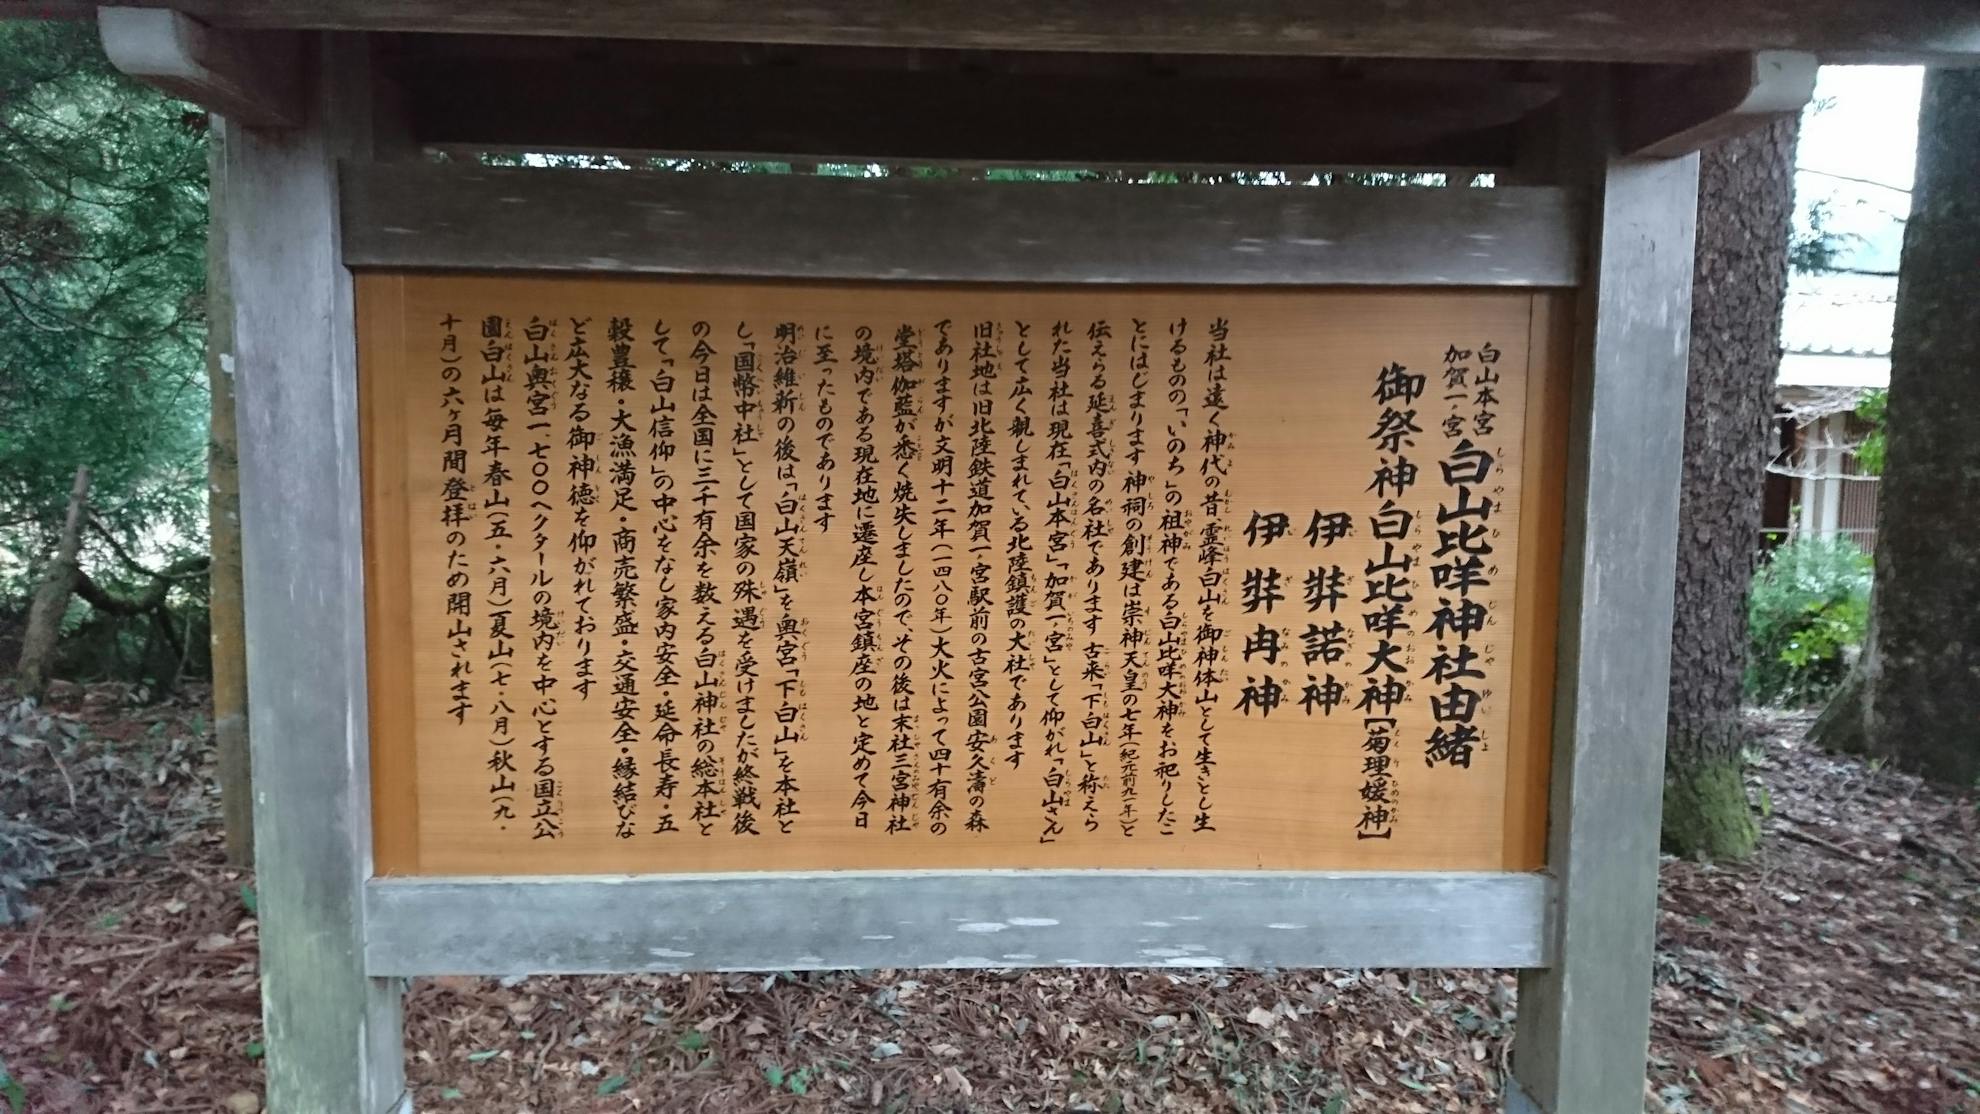 白山本宮
加賀一ノ宮
白山比咩神社由緒
御祭神 白山比咩大神【菊理媛神】
伊弉諾神
伊弉冉神
当社は遠く神代の昔 霊峰白山を御神体山として生きとし生
けるものの「いのち」の祖神である白山比咩大神をお祀りしたこ
とにはじまります 神祠の創建は崇神天皇の七年(紀元前九一年)と
伝えらる延喜式内の名社であります 古来「下白山」と称えら
れた当社は現在「白山本宮」「加賀一ノ宮」として仰がれ「白山さん」
として広く親しまれている北陸鎮護の大社であります
旧社地は旧北陸鉄道加賀一ノ宮駅前の古宮公園安久濤の森
でありますが文明十二年(一四八〇年)大火によって四十有余の
堂塔伽藍が悉く焼失しましたので、その後は末社三宮神社
の境内である現在地に遷座し本宮鎮座の地と定めて今日
に至ったものであります
明治維新の後は「白山天嶺」を奥宮「下白山」を本社と
し「国幣中社」として国家の殊遇を受けましたが終戦後
の今日は全国に三千有余を数える白山神社の総本社と
して「白山信仰」の中心をなし家内安全・延命長寿・五
穀豊穣・大漁満足・商売繁盛・交通安全・縁結びな
ど広大なる御神徳を仰がれております
白山奥宮一、七〇〇ヘクタールの境内を中心とする国立公
園白山は毎年春山(五・六月)夏山(七・八月)秋山(九・
十月)の六ヶ月間登拝のため開山されます